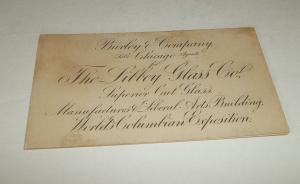 Burley & Company.
Sole Chicago Agents
for
The Libbey Glass Co's.
Superior Cut Glass
Manufactures & Liberal Arts Building.
World's Columbian Exposition.